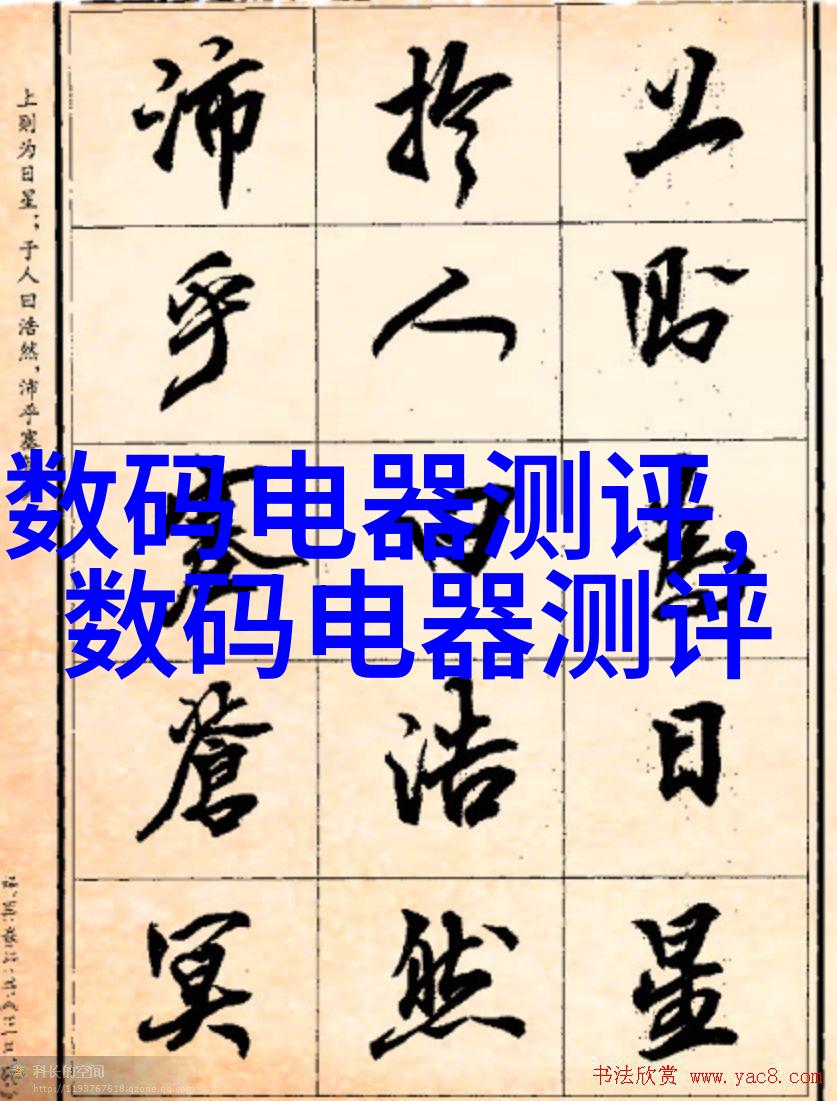 上則為日星
於人曰浩然
沛乎塞蒼冥
上则为日星；于人曰浩然，沛乎塞
数码电器测评，
数码电器测评
科长的空间
http://1193767618.qzone.qq.com
书法欣赏 www.yac8.com